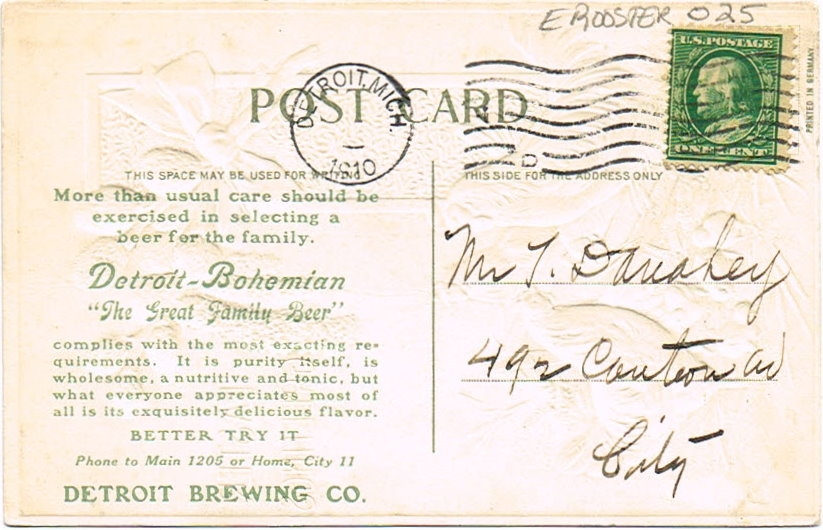 E ROOSTER 025
U.S. POSTAGE
ONE CENT
PRINTED IN GERMANY
POST CARD
DETROIT, MICH.
1910
THIS SPACE MAY BE USED FOR WRITING
THIS SIDE FOR THE ADDRESS ONLY
More than usual care should be
exercised in selecting a
beer for the family.
Detroit-Bohemian
"The Great Family Beer"
complies with the most exacting re-
quirements. It is purity itself, is
wholesome, a nutritive and tonic, but
what everyone appreciates most of
all is its exquisitely delicious flavor.
BETTER TRY IT
Phone to Main 1205 or Home, City 11
DETROIT BREWING CO.
Mr T. Danahey
492 Canton av
City